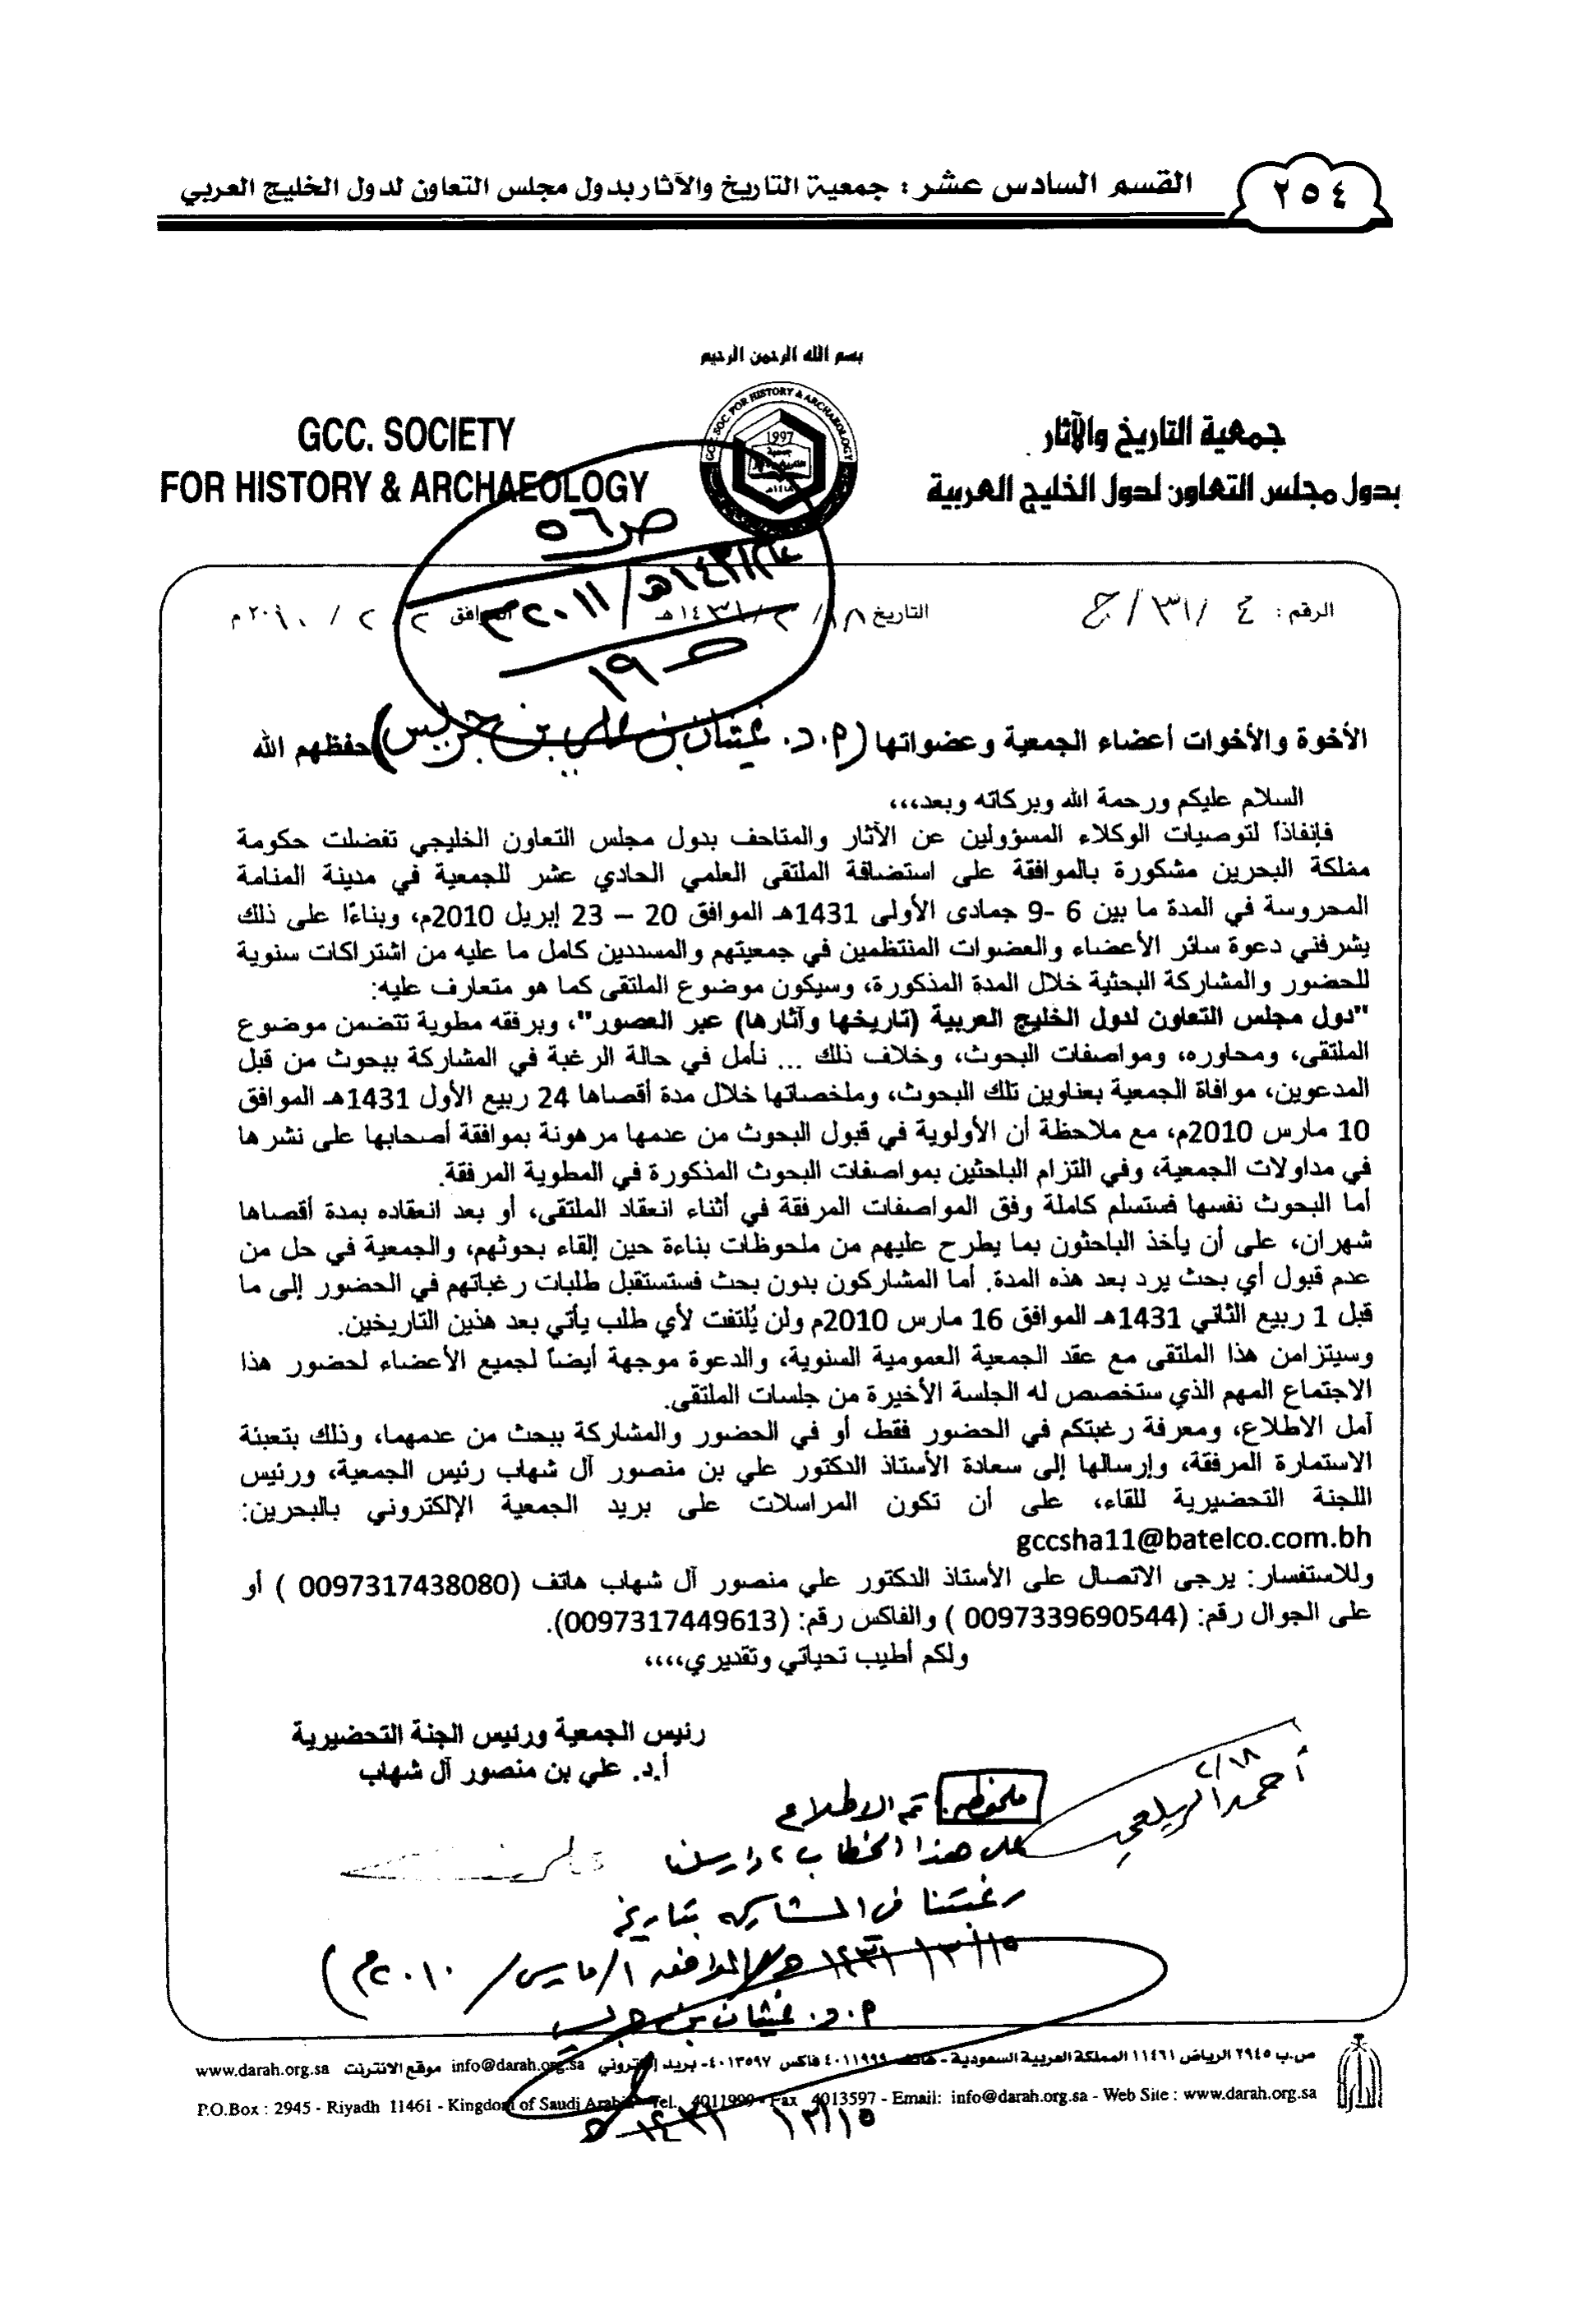 القسم السادس عشر : جمعية التاريخ والآثار بدول مجلس التعاون لدول الخليج العربي
٢٥٤
بسم الله الرحمن الرحيم
جمعية التاريخ والآثار
بدول مجلس التعاون لدول الخليج العربية
GCC. SOCIETY
FOR HISTORY & ARCHAEOLOGY
GCC SOC. FOR HISTORY & ARCHAEOLOGY
1997
ص ٥٦
١٩
الرقم : ٤ /٣١/ ج
التاريخ ١٨/ ٢/ ١٤٣١هـ الموافق ٢/ ٢ / ٢٠١٠م
الأخوة والأخوات أعضاء الجمعية وعضواتها (م.د. غيثان بن علي بن جريس) حفظهم الله
السلام عليكم ورحمة الله وبركاته وبعد،،،
فإنفاذاً لتوصيات الوكلاء المسؤولين عن الآثار والمتاحف بدول مجلس التعاون الخليجي تفضلت حكومة
مملكة البحرين مشكورة بالموافقة على استضافة الملتقى العلمي الحادي عشر للجمعية في مدينة المنامة
المحروسة في المدة ما بين 6 -9 جمادى الأولى 1431هـ الموافق 20 – 23 إبريل 2010م، وبناءًا على ذلك
يشرفني دعوة سائر الأعضاء والعضوات المنتظمين في جمعيتهم والمسددين كامل ما عليه من اشتراكات سنوية
للحضور والمشاركة البحثية خلال المدة المذكورة، وسيكون موضوع الملتقى كما هو متعارف عليه:
"دول مجلس التعاون لدول الخليج العربية (تاريخها وآثارها) عبر العصور"، وبرفقه مطوية تتضمن موضوع
الملتقى، ومحاوره، ومواصفات البحوث، وخلاف ذلك ... نأمل في حالة الرغبة في المشاركة ببحوث من قبل
المدعوين، موافاة الجمعية بعناوين تلك البحوث، وملخصاتها خلال مدة أقصاها 24 ربيع الأول 1431هـ الموافق
10 مارس 2010م، مع ملاحظة أن الأولوية في قبول البحوث من عدمها مرهونة بموافقة أصحابها على نشرها
في مداولات الجمعية، وفي التزام الباحثين بمواصفات البحوث المذكورة في المطوية المرفقة.
أما البحوث نفسها فستسلم كاملة وفق المواصفات المرفقة في أثناء انعقاد الملتقى، أو بعد انعقاده بمدة أقصاها
شهران، على أن يأخذ الباحثون بما يطرح عليهم من ملحوظات بناءة حين إلقاء بحوثهم، والجمعية في حل من
عدم قبول أي بحث يرد بعد هذه المدة. أما المشاركون بدون بحث فستستقبل طلبات رغباتهم في الحضور إلى ما
قبل 1 ربيع الثاني 1431هـ الموافق 16 مارس 2010م ولن يُلتفت لأي طلب يأتي بعد هذين التاريخين.
وسيتزامن هذا الملتقى مع عقد الجمعية العمومية السنوية، والدعوة موجهة أيضاً لجميع الأعضاء لحضور هذا
الاجتماع المهم الذي ستخصص له الجلسة الأخيرة من جلسات الملتقى.
آمل الاطلاع، ومعرفة رغبتكم في الحضور فقط، أو في الحضور والمشاركة ببحث من عدمهما، وذلك بتعبئة
الاستمارة المرفقة، وإرسالها إلى سعادة الأستاذ الدكتور علي بن منصور آل شهاب رئيس الجمعية، ورئيس
اللجنة التحضيرية للقاء، على أن تكون المراسلات على بريد الجمعية الإلكتروني بالبحرين:
gccsha11@batelco.com.bh
وللاستفسار: يرجى الاتصال على الأستاذ الدكتور علي منصور آل شهاب هاتف (0097317438080 ) أو
على الجوال رقم: (0097339690544 ) والفاكس رقم: (0097317449613).
ولكم أطيب تحياتي وتقديري،،،،
رئيس الجمعية ورئيس الجنة التحضيرية
أ.د. علي بن منصور آل شهاب
٢/١٨
أحمد الزيلعي
ملحوظة: تم الاطلاع
على هذا الخطاب، وارسلنا
رغبتنا في المشاركة بتاريخ
١٥/ ٣/ ١٤٣١هـ الموافق ١/ مارس/ ٢٠١٠م)
م.د. غيثان بن جريس
١٥/ ٣/ ١٤٣١هـ
ص.ب ٢٩٤٥ الرياض ١١٤٦١ المملكة العربية السعودية - هاتف ٤٠١١٩٩٩ فاكس ٤٠١٣٥٩٧- بريد إلكتروني info@darah.org.sa موقع الانترنت www.darah.org.sa
P.O.Box : 2945 - Riyadh 11461 - Kingdom of Saudi Arabia - Tel. 4011999 - Fax 4013597 - Email: info@darah.org.sa - Web Site : www.darah.org.sa